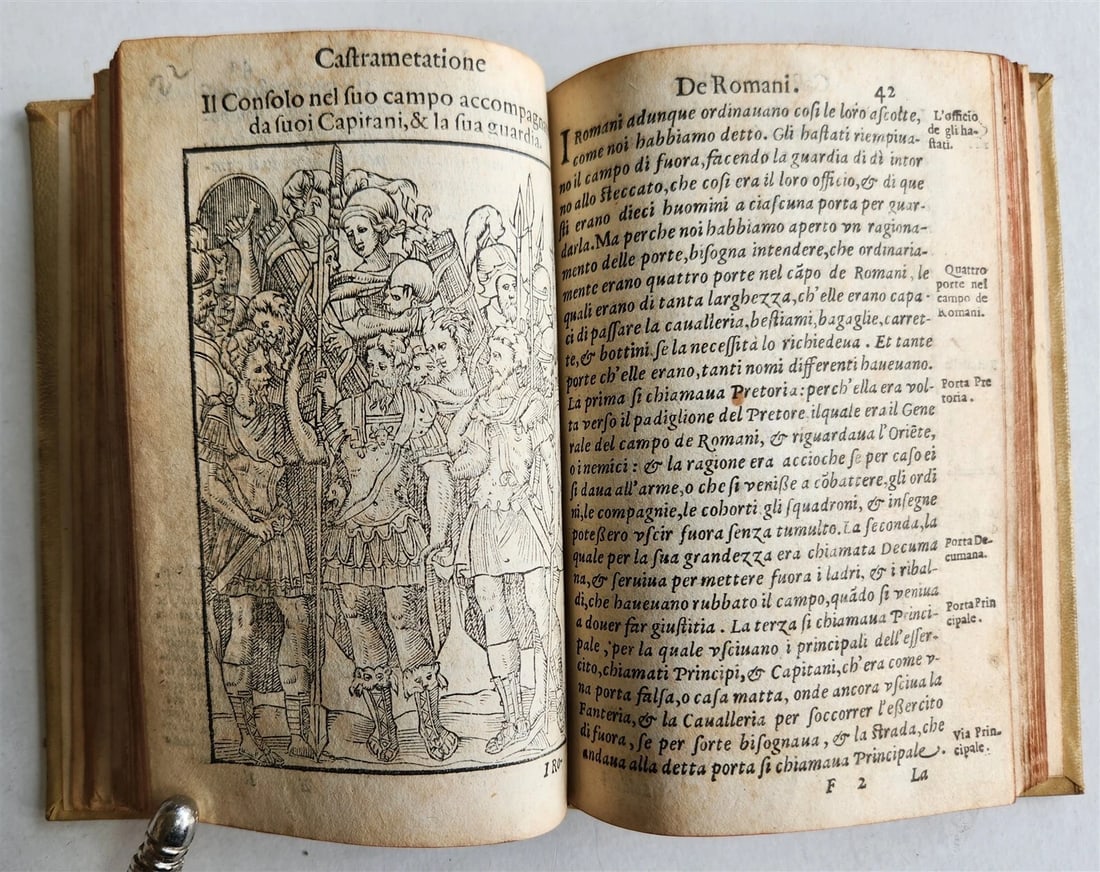 22
Caſtrametatione
Il Conſolo nel ſuo campo accompagna
da ſuoi Capitani, & la ſua guardia.
I Ro-
De Romani.
42
I Romani adunque ordinauano coſi le loro aſcolte,
come noi habbiamo detto. Gli haſtati riempiua-
no il campo di fuora, facendo la guardia di dì intor
no allo ſteccato, che coſi era il loro officio, & di que
ſti erano dieci huomini a ciaſcuna porta per guar-
darla. Ma perche noi habbiamo aperto vn ragiona-
mento delle porte, biſogna intendere, che ordinaria-
mente erano quattro porte nel cãpo de Romani, le
quali erano di tanta larghezza, ch'elle erano capa-
ci di paſſare la caualleria, beſtiami, bagaglie, carret-
te, & bottini, ſe la neceſſità lo richiedeua. Et tante
porte ch'elle erano, tanti nomi differenti haueuano.
La prima ſi chiamaua Pretoria: perch'ella era vol-
ta verſo il padiglione del Pretore, ilquale era il Gene
rale del campo de Romani, & riguardaua l'Oriẽte,
o inemici: & la ragione era accioche ſe per caſo ei
ſi daua all'arme, o che ſi veniſſe a cõbattere, gli ordi
ni, le compagnie, le cohorti, gli ſquadroni, & inſegne
poteſſero vſcir fuora ſenza tumulto. La ſeconda, la
quale per la ſua grandezza era chiamata Decuma
na, & ſeruiua per mettere fuora i ladri, & i ribal-
di, che haueuano rubbato il campo, quãdo ſi veniua
a douer far giuſtitia. La terza ſi chiamaua Princi-
pale, per la quale vſciuano i principali dell'eſſer-
cito, chiamati Principi, & Capitani, ch'era come v-
na porta falſa, o caſa matta, onde ancora vſciua la
Fanteria, & la Caualleria per ſoccorrer l'eſſercito
di fuora, ſe per ſorte biſognaua, & la ſtrada, che
andaua alla detta porta ſi chiamaua Principale.
F 2 La
L'officio
de gli ha-
ſtati.
Quattro
porte nel
campo de
Romani.
Porta Pre
toria.
Porta De-
cumana.
Porta Prin
cipale.
Via Prin-
cipale.